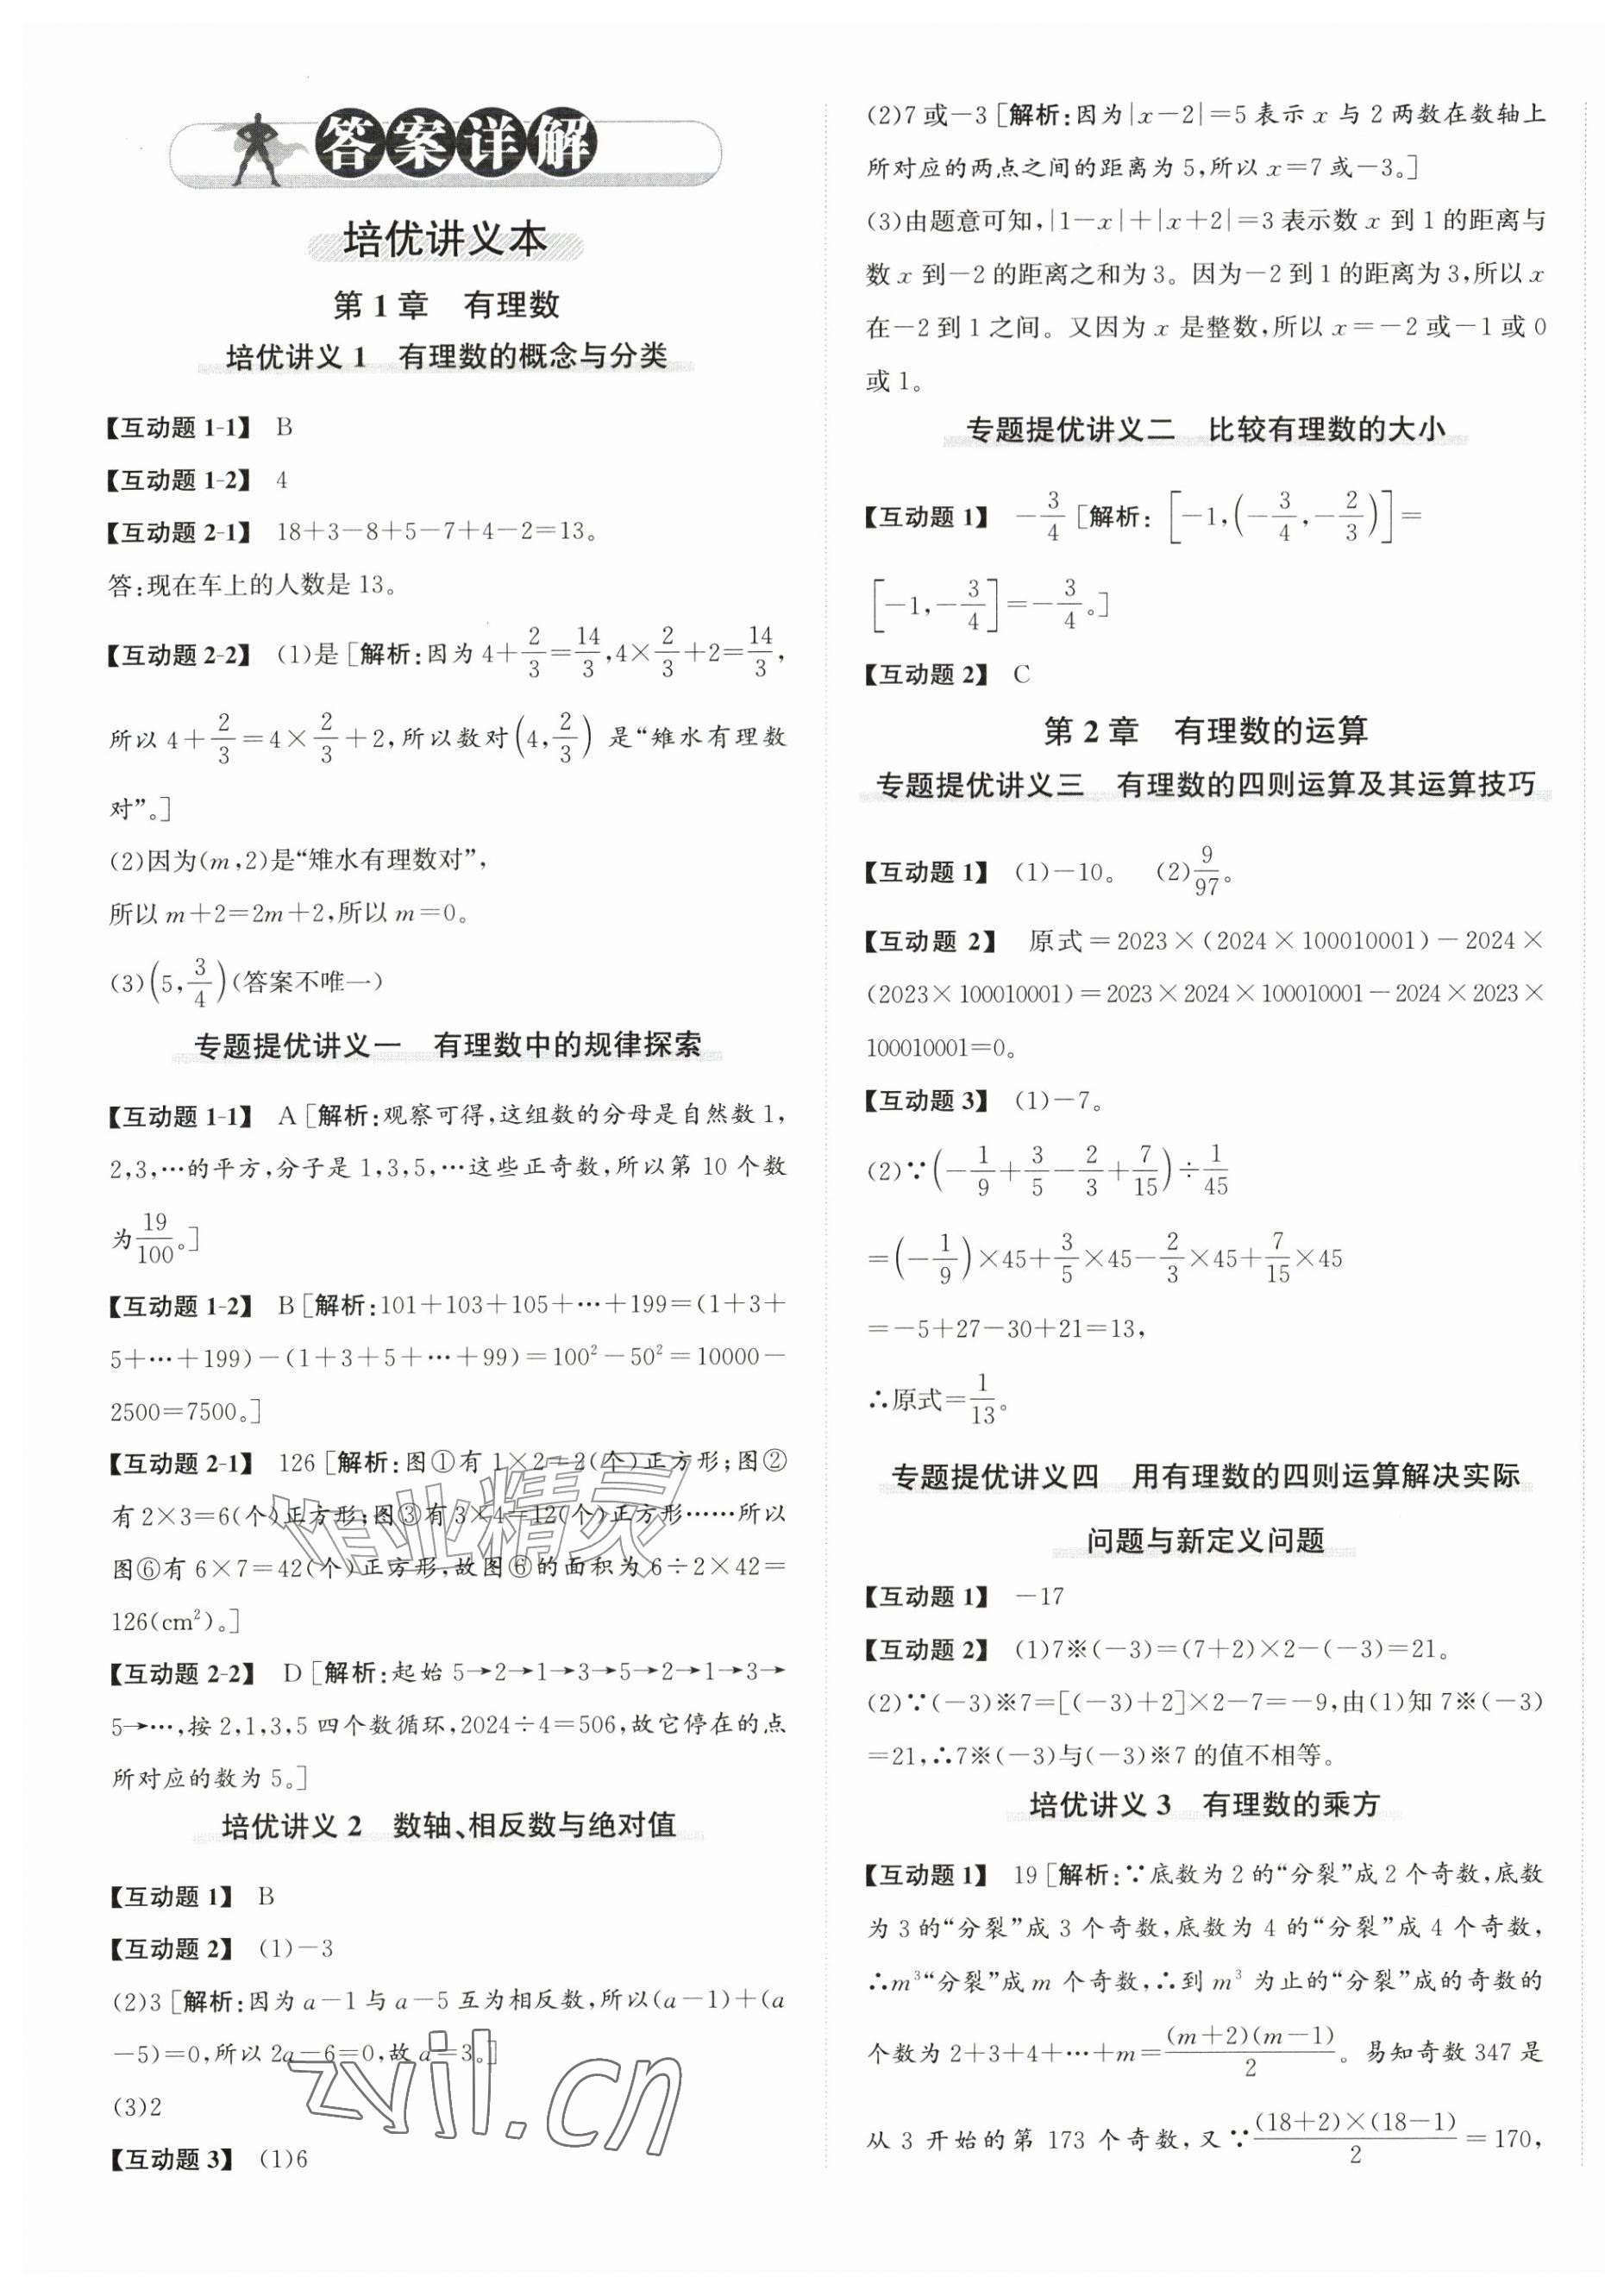 答案详解
培优讲义本
第1章 有理数
培优讲义1 有理数的概念与分类
【互动题1-1】 B
【互动题1-2】 4
【互动题2-1】 18+3-8+5-7+4-2=13。
答:现在车上的人数是13。
【互动题2-2】 (1)是[解析:因为4+2/3=14/3,4×2/3+2=14/3,
所以4+2/3=4×2/3+2,所以数对(4,2/3)是“雉水有理数
对”。]
(2)因为(m,2)是“雉水有理数对”,
所以m+2=2m+2,所以m=0。
(3)(5,3/4)(答案不唯一)
专题提优讲义一 有理数中的规律探索
【互动题1-1】 A[解析:观察可得,这组数的分母是自然数1,
2,3,…的平方,分子是1,3,5,…这些正奇数,所以第10个数
为19/100。]
【互动题1-2】 B[解析:101+103+105+…+199=(1+3+
5+…+199)-(1+3+5+…+99)=100²-50²=10000-
2500=7500。]
【互动题2-1】 126[解析:图①有1×2=2(个)正方形;图②
有2×3=6(个)正方形;图③有3×4=12(个)正方形……所以
图⑥有6×7=42(个)正方形,故图⑥的面积为6÷2×42=
126(cm²)。]
【互动题2-2】 D[解析:起始5→2→1→3→5→2→1→3→
5→…,按2,1,3,5四个数循环,2024÷4=506,故它停在的点
所对应的数为5。]
培优讲义2 数轴、相反数与绝对值
【互动题1】 B
【互动题2】 (1)-3
(2)3[解析:因为a-1与a-5互为相反数,所以(a-1)+(a
-5)=0,所以2a-6=0,故a=3。]
(3)2
【互动题3】 (1)6
(2)7或-3[解析:因为|x-2|=5表示x与2两数在数轴上
所对应的两点之间的距离为5,所以x=7或-3。]
(3)由题意可知,|1-x|+|x+2|=3表示数x到1的距离与
数x到-2的距离之和为3。因为-2到1的距离为3,所以x
在-2到1之间。又因为x是整数,所以x=-2或-1或0
或1。
专题提优讲义二 比较有理数的大小
【互动题1】 -3/4[解析:[-1,(-3/4,-2/3)]=
[-1,-3/4]=-3/4。]
【互动题2】 C
第2章 有理数的运算
专题提优讲义三 有理数的四则运算及其运算技巧
【互动题1】 (1)-10。 (2)9/97。
【互动题2】 原式=2023×(2024×100010001)-2024×
(2023×100010001)=2023×2024×100010001-2024×2023×
100010001=0。
【互动题3】 (1)-7。
(2)∵(-1/9+3/5-2/3+7/15)÷1/45
=(-1/9)×45+3/5×45-2/3×45+7/15×45
=-5+27-30+21=13,
∴原式=1/13。
专题提优讲义四 用有理数的四则运算解决实际
问题与新定义问题
【互动题1】 -17
【互动题2】 (1)7※(-3)=(7+2)×2-(-3)=21。
(2)∵(-3)※7=[(-3)+2]×2-7=-9,由(1)知7※(-3)
=21,∴7※(-3)与(-3)※7的值不相等。
培优讲义3 有理数的乘方
【互动题1】 19[解析:∵底数为2的“分裂”成2个奇数,底数
为3的“分裂”成3个奇数,底数为4的“分裂”成4个奇数,
∴m³“分裂”成m个奇数,∴到m³为止的“分裂”成的奇数的
个数为2+3+4+…+m=(m+2)(m-1)/2。易知奇数347是
从3开始的第173个奇数,又∵(18+2)×(18-1)/2=170,
作业精灵
zyjl.cn